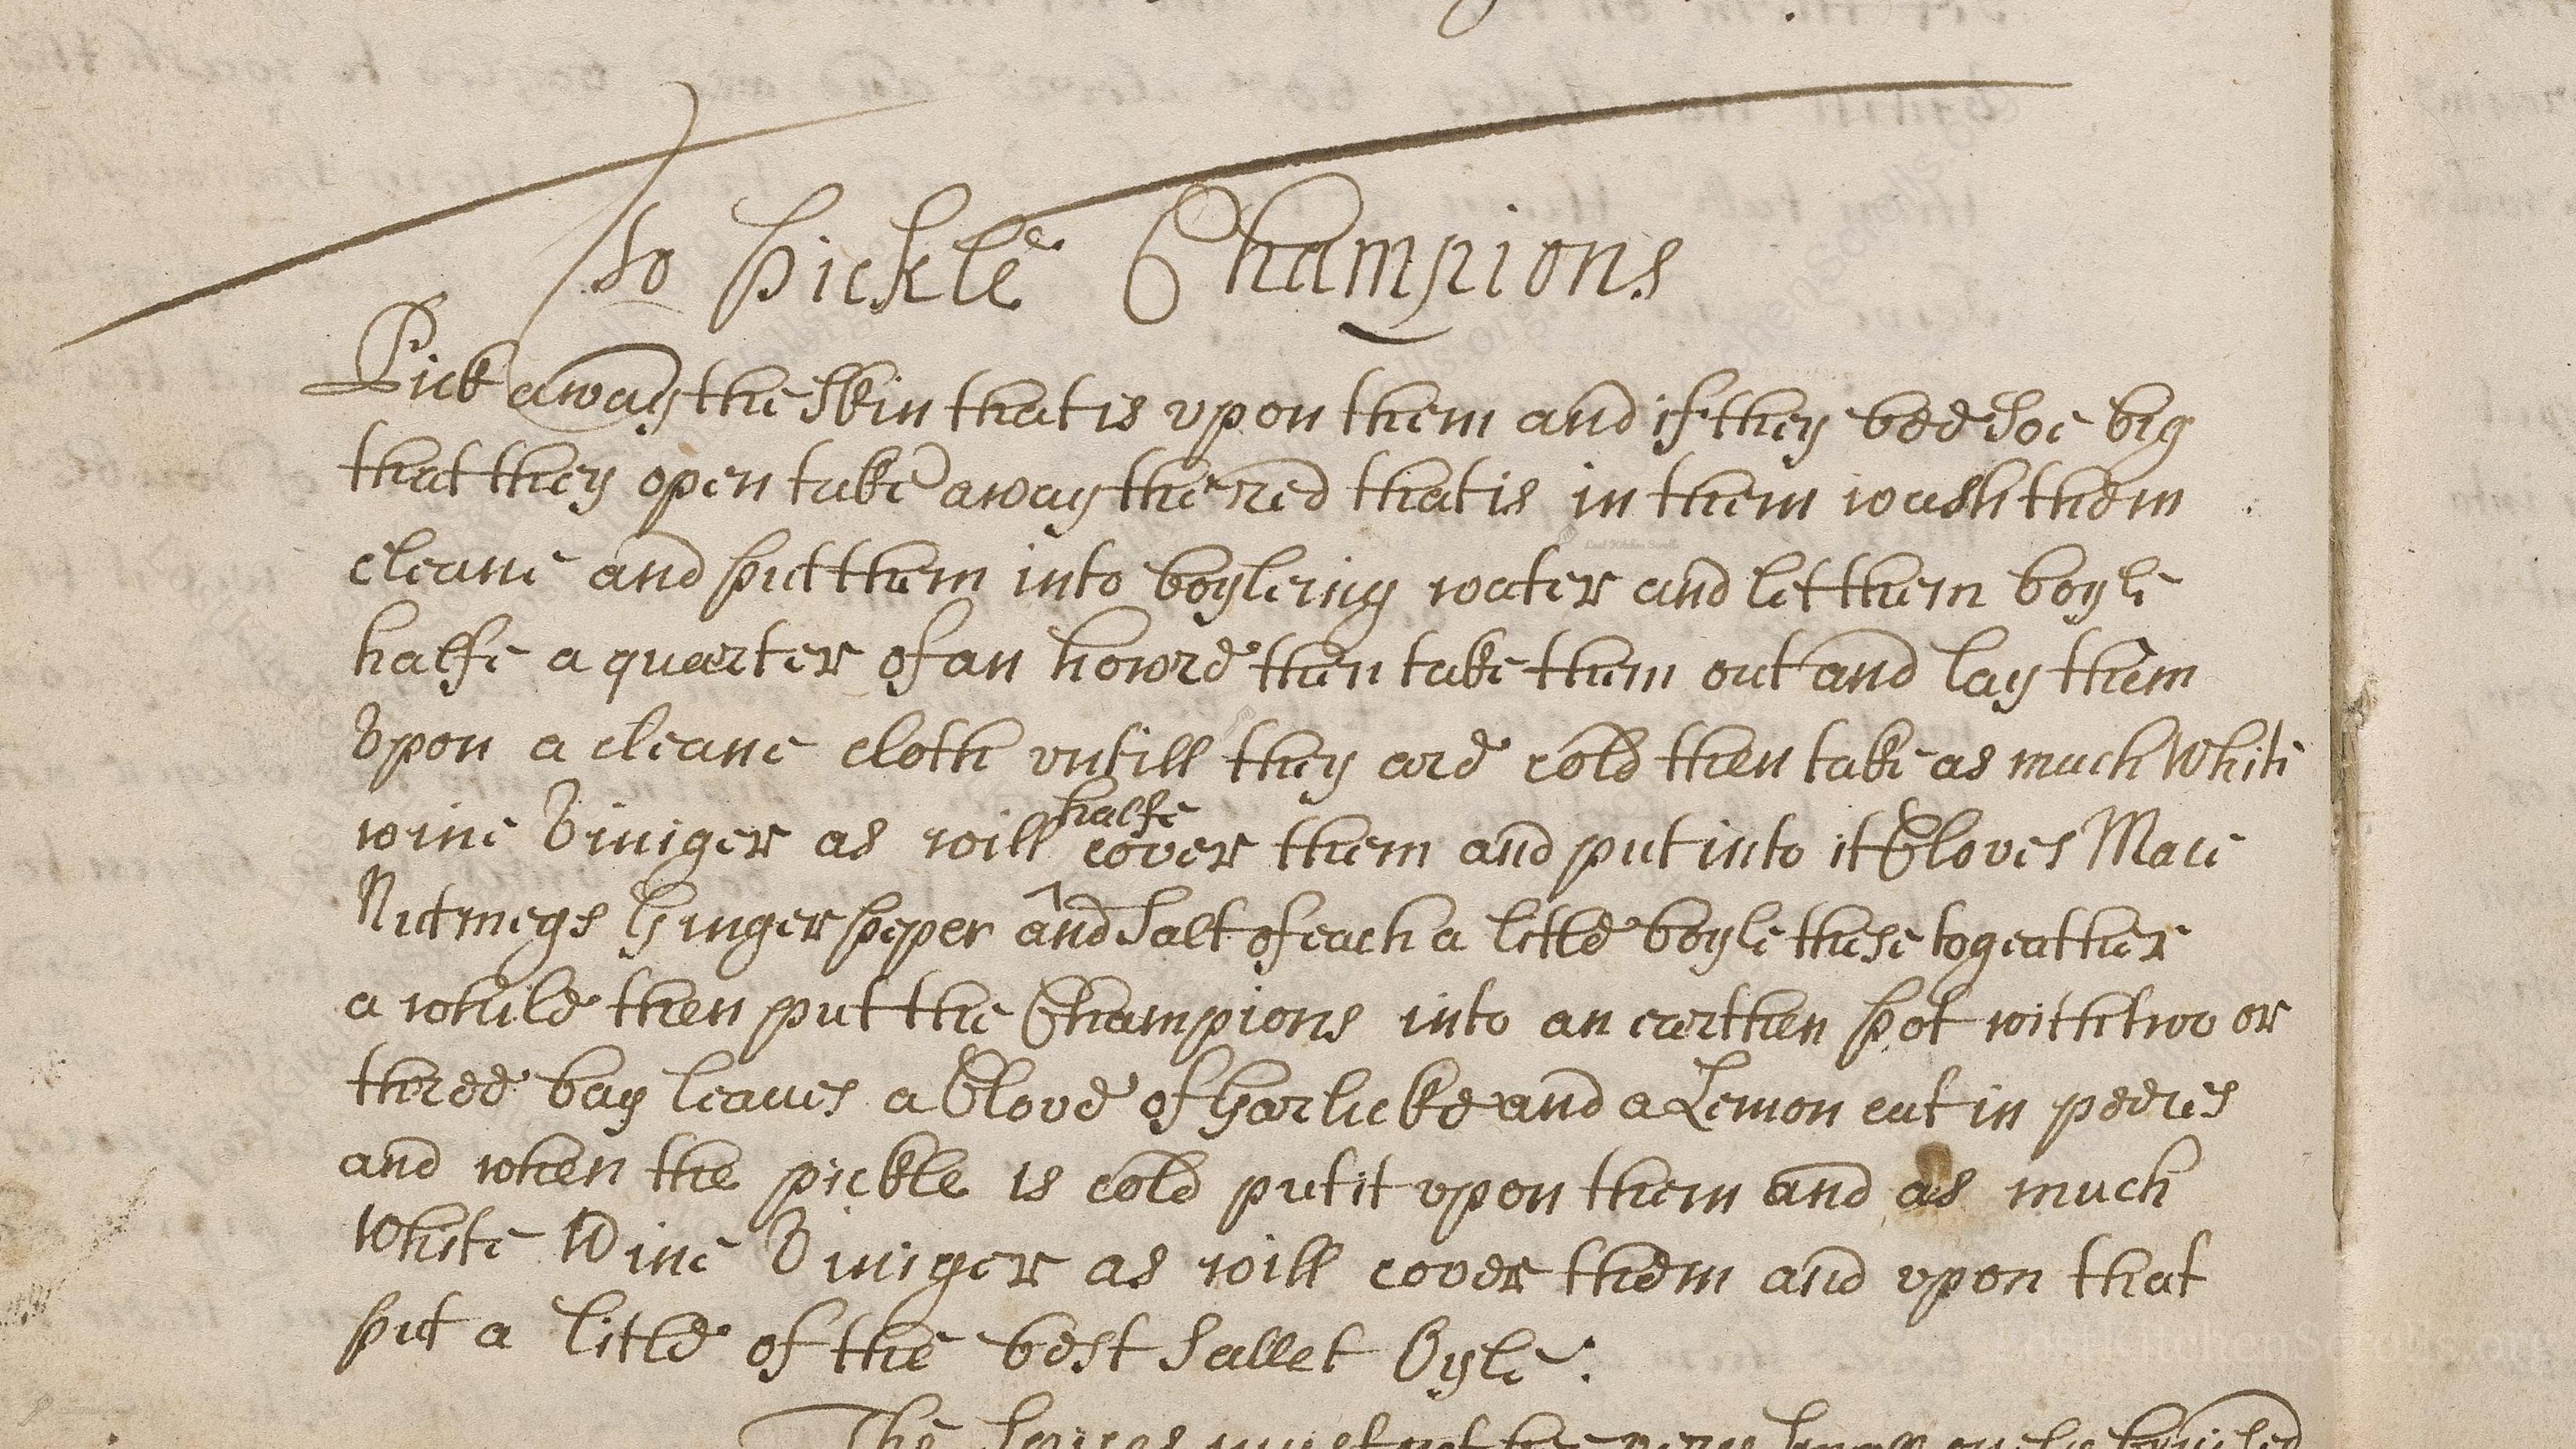 To Pickle Champions
Pick away the Skin that is vpon them and if they bee Soe big
that they open take away the red that is in them wash them
cleane and put them into boyleing water and let them boyle
halfe a quarter of an howre then take them out and lay them
Vpon a cleane cloth vntill they are cold then take as much White
wine Viniger as will ^halfe cover them and put into it Cloves Mace
Nutmegs Ginger peper and Salt of each a litle boyle these togeather
a while then put the Champions into an earthen pot with two or
three bay leaues a Clove of Garlicke and a Lemon cut in peeces
and when the pickle is cold put it vpon them and as much
White Wine Viniger as will cover them and vpon that
put a litle of the best Sallet Oyle.
The Spices must not be very Small onely bruised